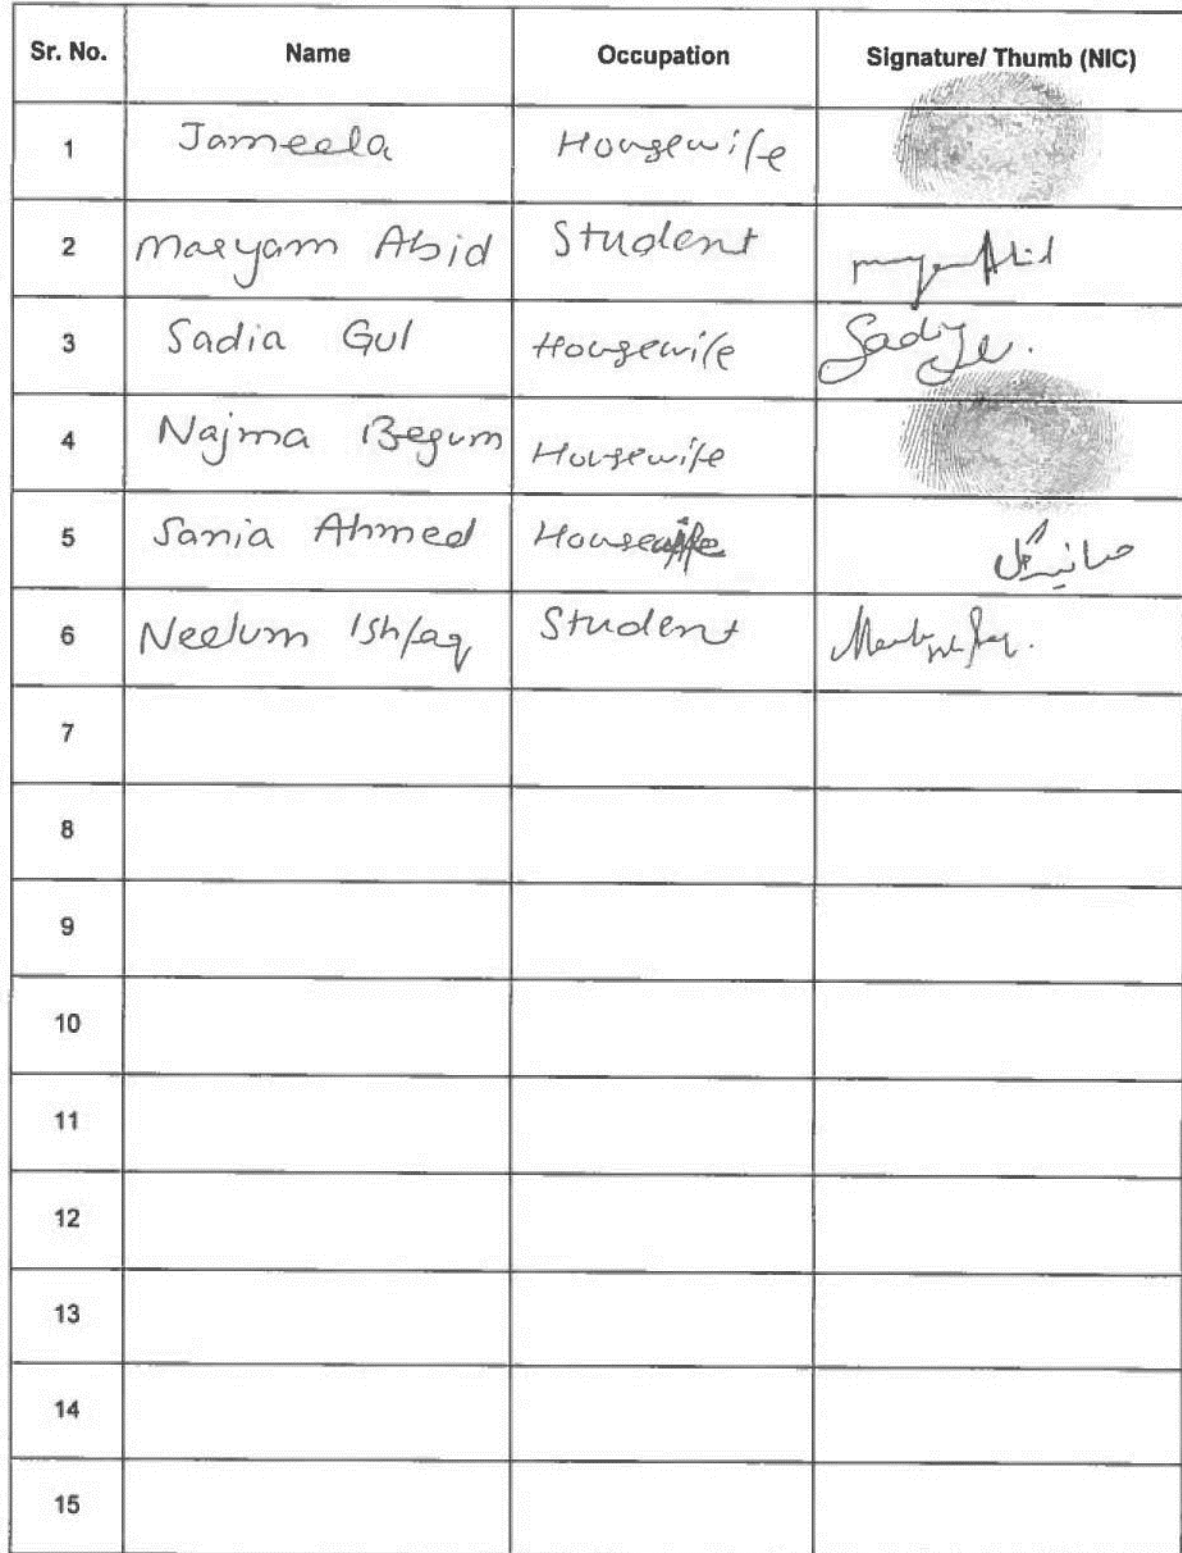 Sr. No. Name Occupation Signature/ Thumb (NIC)
1 Jameela Housewife
2 Maryam Abid Student
3 Sadia Gul Housewife Sadia
4 Najma Begum Housewife
5 Sania Ahmed Housewife
6 Neelum Ishfaq Student
7
8
9
10
11
12
13
14
15